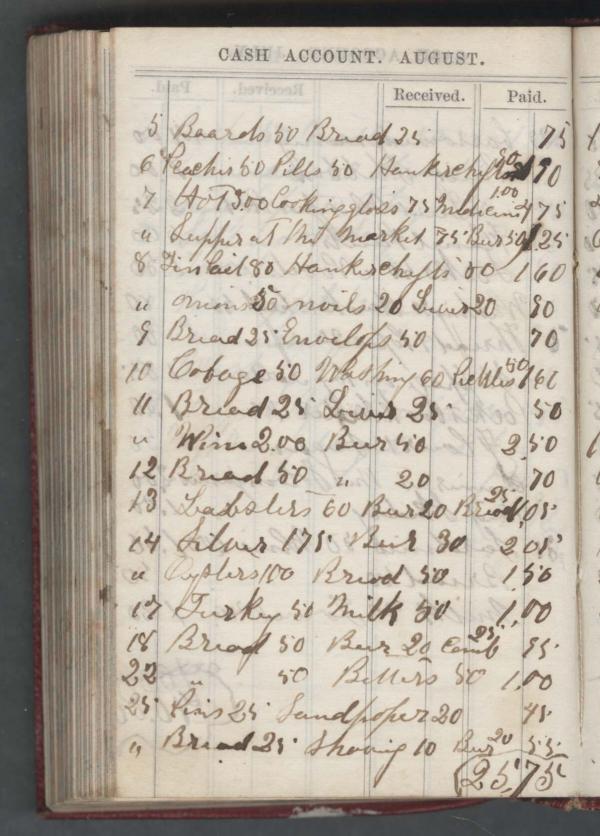 CASH ACCOUNT. AUGUST.
Received. Paid.
5 Boards 50 Bread 25 75
6 Peachis 50 Pills 50 Hankerchyfs 90 190
7 Hot 3.00 Cookinggloss 75 Medicine 1.00 4 75
" Supper at the Market 75 Beer 50 1 25
8 Tin Pail 80 Hankerchyfs 80 1 60
" onions 50 nails 20 Liver 20 90
9 Bread 25 Envelops 50 70
10 Cobage 50 Washing 60 Pickles 50 1 60
11 Bread 25 Liver 25 50
" Wine 2.00 Beer 50 2,50
12 Bread 50 " 20 70
13 Labsters 60 Beer 20 Bread 25 1,05
14 Silver 175 Beer 30 2,05
" Oysters 100 Bread 50 1,50
17 Turkey 50 Milk 50 1,00
18 Bread 50 Beer 20 Comb 25 95
22 " 50 Bitters 50 1,00
25 Pies 25 Sandpoper 20 45
" Bread 25 Shaving 10 Beer 20 55
25,75